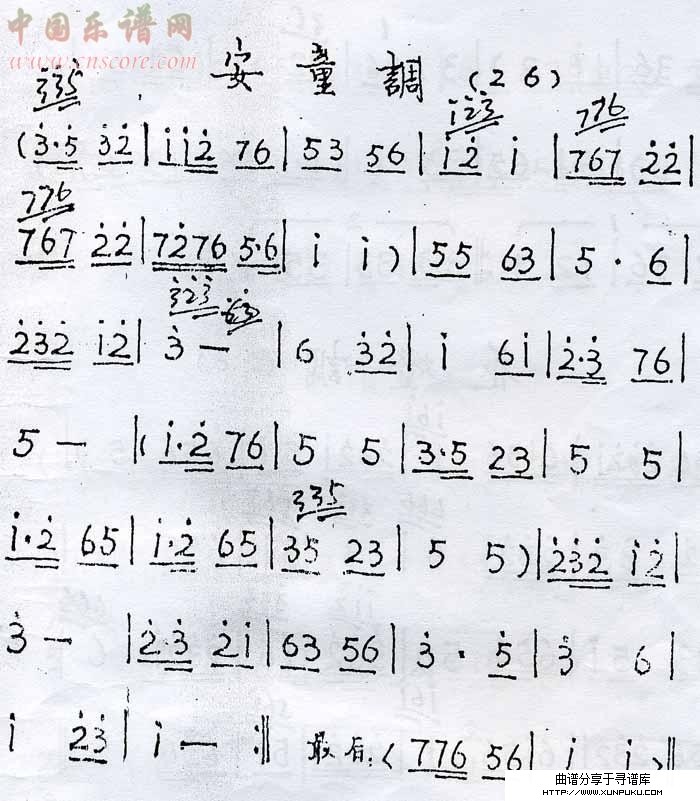 中国乐谱网
www.cnscore.com
安童調 (2 6)
3̇3̇5̇ 1̇2̇3̇ 776
(3̇·5̇ 3̇2̇ | 1̇1̇2̇ 76 | 53 56 | 1̇2̇ 1̇ | 767 2̇2̇ |
776
767 2̇2̇ | 72̇76 5·6 | 1̇ 1̇ ) | 55 63 | 5 · 6 |
3̇2̇3̇
2̇3̇2̇ 1̇2̇ | 3̇ — | 6 3̇2̇ | 1̇ 61̇ | 2̇·3̇ 76 |
5 — | ( 1̇·2̇ 76 | 5 5 | 3·5 23 | 5 5 |
335
1̇·2̇ 65 | 1̇·2̇ 65 | 35 23 | 5 5 ) | 2̇3̇2̇ 1̇2̇ |
3̇ — | 2̇·3̇ 2̇1̇ | 63 56 | 3̇ · 5̇ | 3̇ 6 |
1̇ 2̇3̇ | 1̇ — :‖ 最后:( 776 56 | 1̇ 1̇ )‖
曲谱分享于寻谱库
HTTP://WWW.XUNPUKU.COM